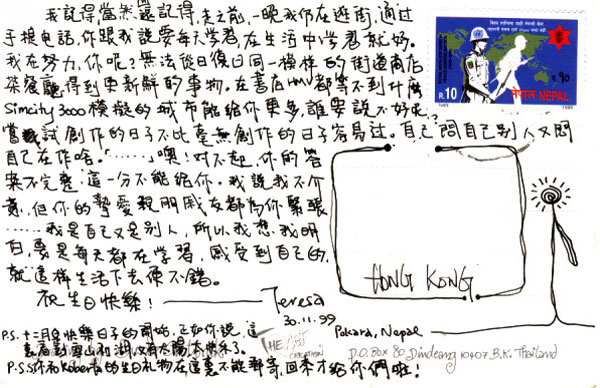 我記得當然還記得,走之前,一晚我仍在逛街,通过
手提电話,你跟我說要每天学習,在生活中学習就好。
我在努力,你呢?無法從日復日同一模樣的街道商店
茶餐廳得到更新鮮的事物。在書店 都等不到什麼
Simcity 3000 模擬的城市能給你更多,誰要說不好呢?
嘗試創作的日子不比毫無創作的日子容易过。自己問自己別人又問
自己在作啥。「……」噢!对不起,你的答
案不完整,這一分不能給你。我說我不介
意,但你的摯愛親朋戚友都為你緊張
……我是自己又是別人,所以我想,我明
白,要是每天都在学習,感受到自己的,
就這樣生活下去便不錯。
祝生日快樂! Teresa
30.11.99
P.S. 十二月是快樂日子的開始,正如你說,這
裏
P.S.S 你和Kobe的生日礼物在這裏不能郵寄,回來才給你們啦!
R.10
नेपाल NEPAL
HONG KONG
Pakara, Nepal
THE ART CREATION
P.O.Box 80 Dindeang 10407 B.K. Thailand